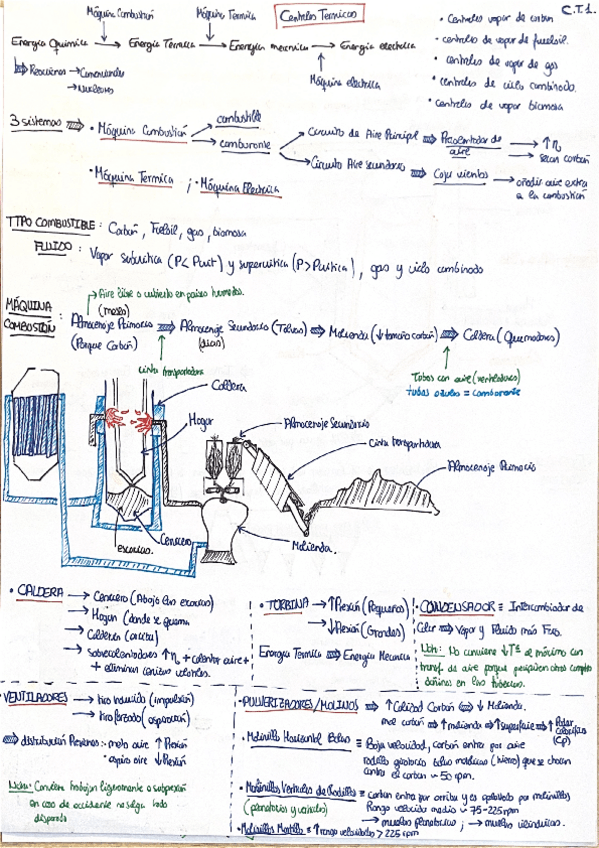 C.T.1.
Centrales Termicas
Máquina Combustión
Máquina Térmica
Energía Química → Energía Térmica → Energía mecánica → Energía electrica
Máquina electrica
Reacciones → Comerciales
→ Nucleares
• Centrales vapor de carbon
• centrales de vapor de fueloil.
• centrales de vapor de gas
• centrales de ciclo combinado.
• centrales de vapor biomasa
3 sistemas ⇒ • Máquina Combustión → combustible
→ comburente
→ Circuito de Aire Principal ⇒ Precalentador de aire → ↑η
→ secar carbón
→ Circuito Aire secundario ⇒ Caja vientos → añadir aire extra
a la combustión
• Máquina Termica ; • Máquina Electrica
TIPO COMBUSTIBLE : Carbón, Fueloil, gas, biomasa
FLUIDO : Vapor subcritica (P< Pcrit) y supercritica (P> Pcritica), gas y ciclo combinado
Aire libre o cubierto en paises humedos.
(meses)
MÁQUINA COMBUSTIÓN : Almacenaje Primario ⇒ Almacenaje Secundario (Tolvas) ⇒ Molienda (↓ tamaño carbón) ⇒ Caldera (Quemadores)
(Parque Carbón)
(dias)
cinta transportadora
Tubos con aire (ventiladores)
tubos azules = comburente
Caldera
Hogar
Almacenaje Secundario
Cinta transportadora
Almacenaje Primario
Cenicero
escorias.
Molienda.
• CALDERA → Cenicero (Abajo las escorias)
→ Hogar (donde se quema
→ Calderin (arriba)
→ Sobrecalentadores ↑η + calentar aire +
+ eliminar cenizas volantes.
• TURBINA → ↑Presión (Pequeños)
→ ↓Presión (Grandes)
Energía Termica ⇒ Energía Mecanica
• CONDENSADOR = Intercambiador de
Calor ⇒ Vapor y Fluido más Frio.
Nota: No conviene ↓Tª al máximo con
transf. de aire porque
dañinos en las tuberias.
VENTILADORES → tiro inducido (impulsión)
→ tiro forzado (aspiración)
⇒ distribución Presiones: • mete aire ↑ Presión
• aspira aire ↓ Presión
Nota: Conviene trabajar ligeramente a subpresión
en caso de accidente no salga todo
disparado
• PULVERIZADORES/MOLINOS ⇒ ↑ Calidad Carbón ⇔ ↓ Molienda.
mal carbón ⇒ ↑ molienda ⇒ ↑ superficie ⇒ ↑ Poder
calorifico
(Cp)
• Molinillo Horizontal Bolas = Baja velocidad, carbón entra por aire
rodillo giratorio bolas metálicas (hierro) que se chocan
contra el carbón ~ 50 rpm.
• Molinillos Verticales de Rodillos = carbón entra por arriba y es aplastado por molinillos
(planetarios y verticales) Rango velocidad medio ~ 75-225 rpm
→ muelas planetarias ; → muelas cilindricas.
• Molinillos Martillo = ↑ rango velocidades > 225 rpm